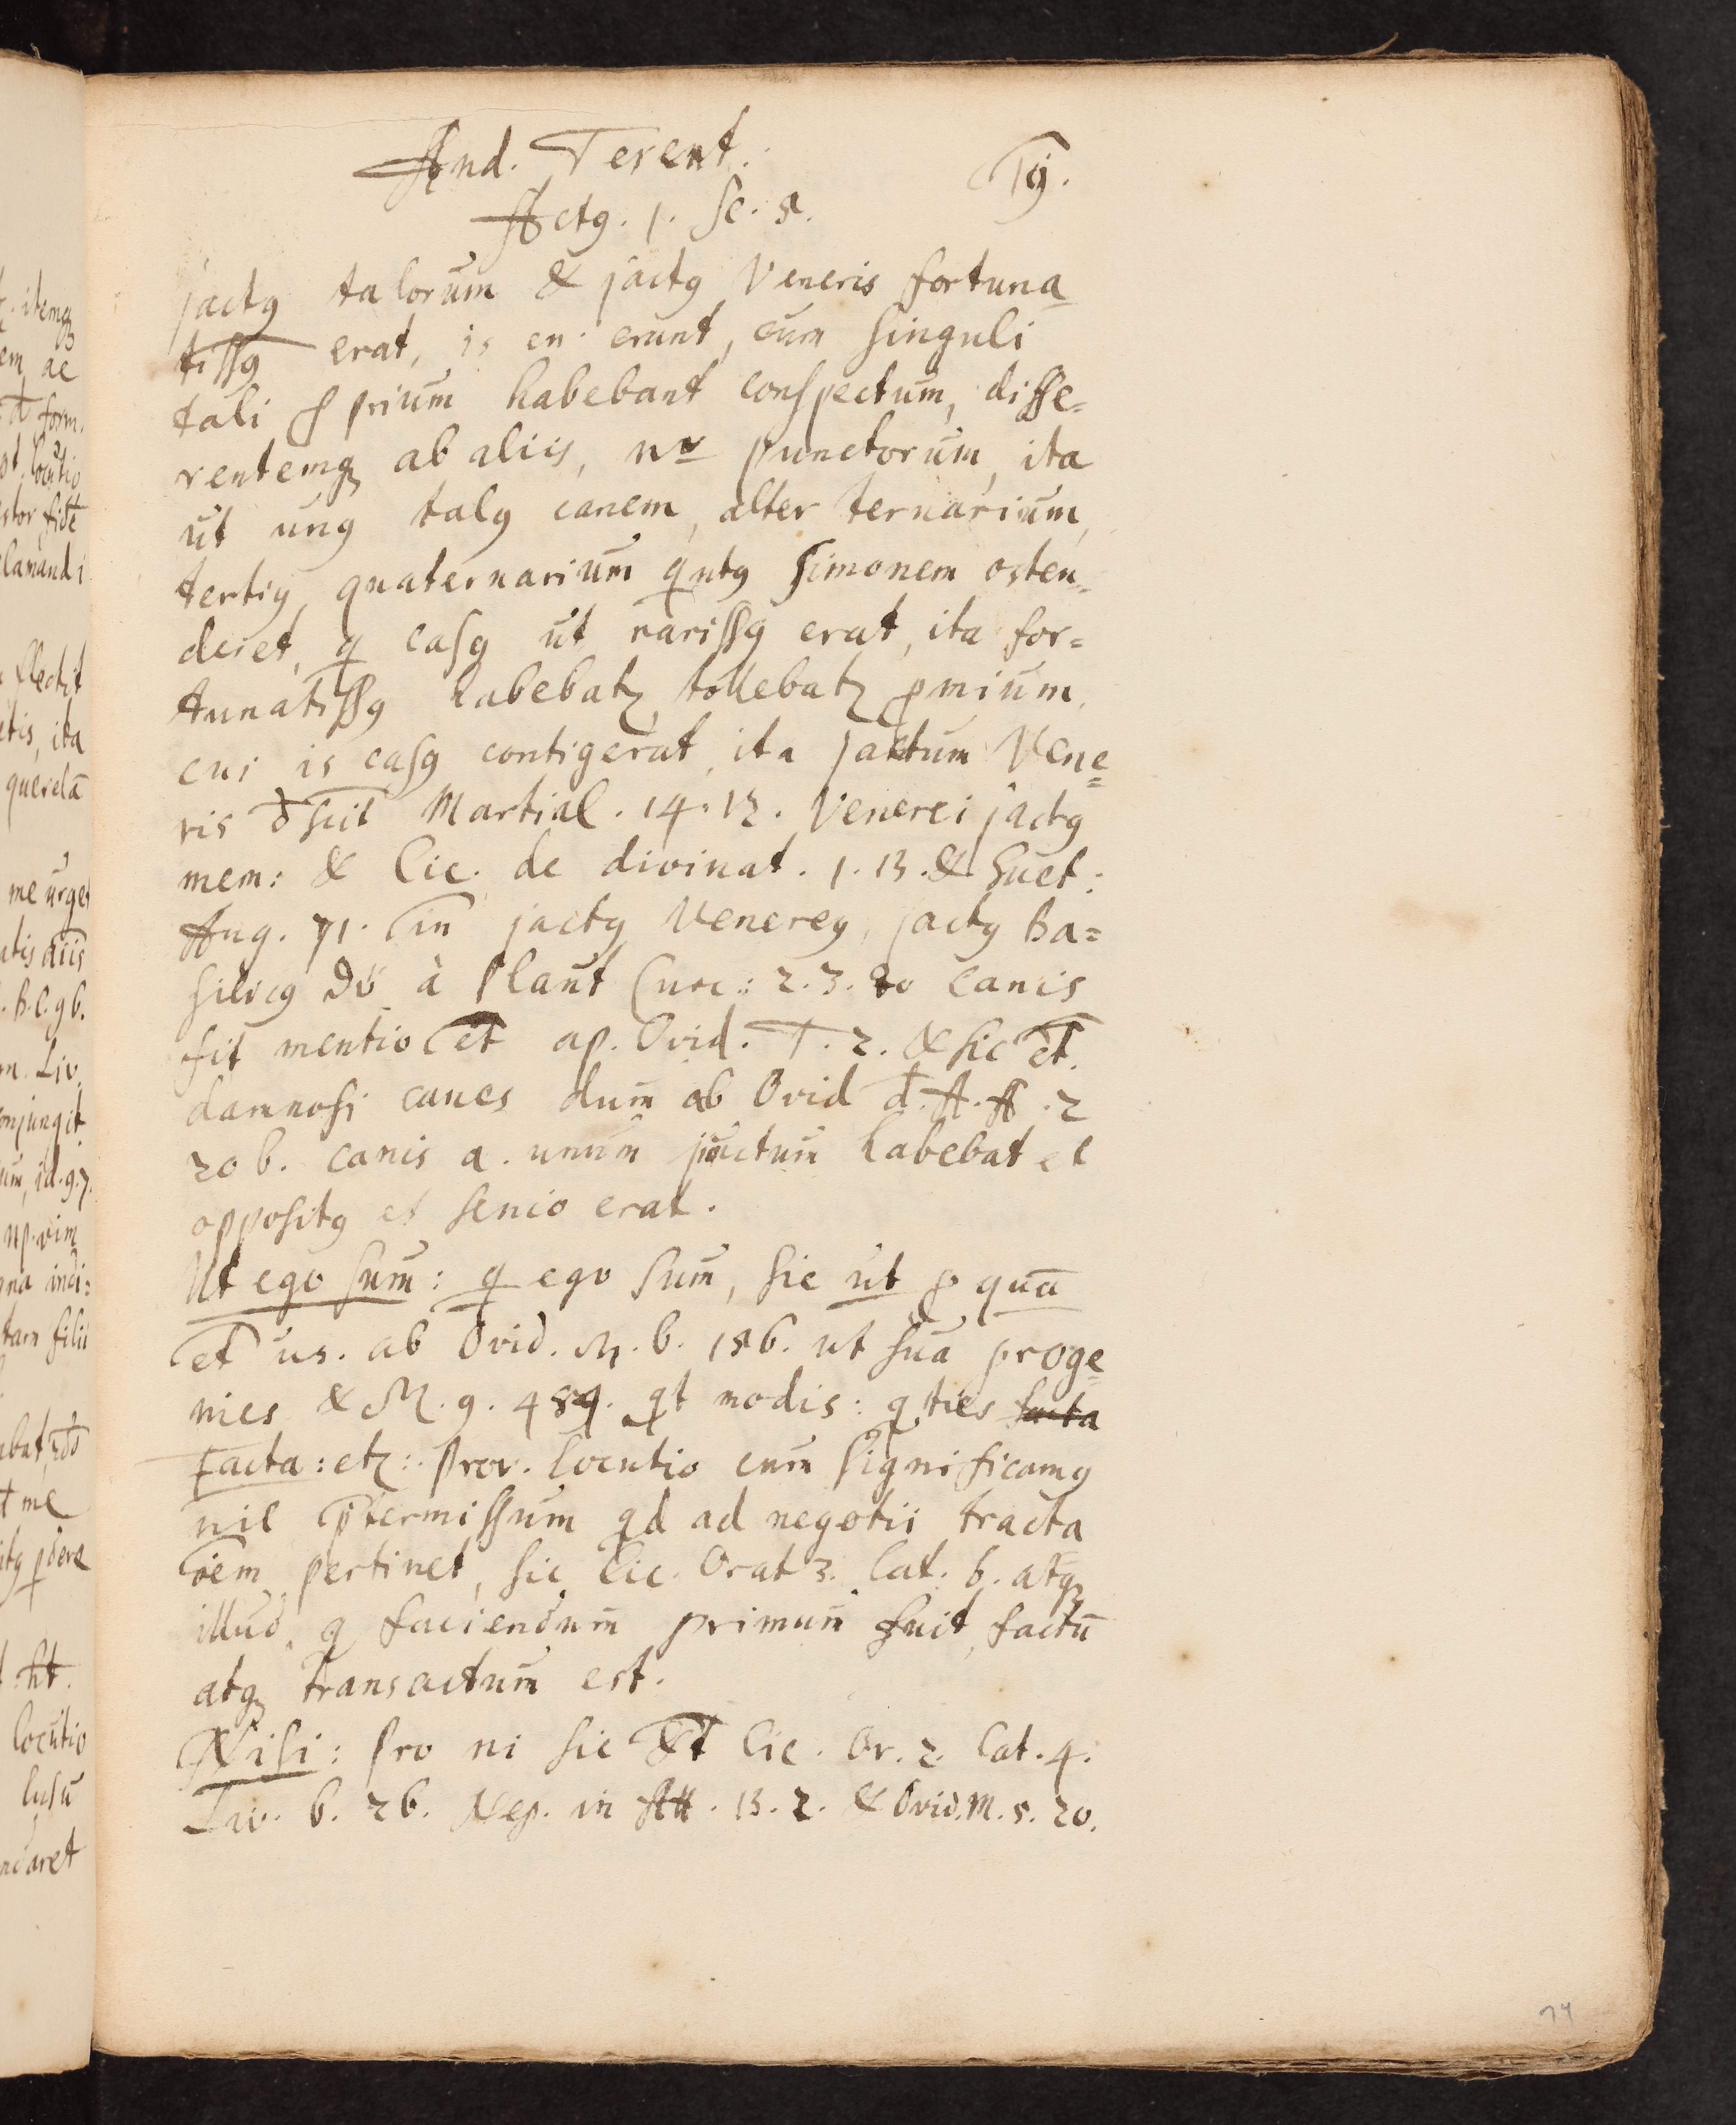 And. Terent.
Actꝰ. 1. Sc. 5.
jactꝰ talorum & jactꝰ Veneris fortuna
tissꝰ erat, is en. erant, cum singuli
tali prium habebant conspectum, diffe=
rentemq; ab aliis, nr punctorum, ita
ut unꝰ talꝰ canem, alter ternarium,
tertiꝰ, quaternarium qntꝰ Simonem osten=
deret, q casꝰ ut rarissꝰ erat, ita for=
tunatissꝰ habebatz, tollebatz pmium,
cui is casꝰ contigerat, ita jactum Vene=
ris Martial. 14. 13. Venerei jactꝰ
mem: & Cic. de divinat. 1. 13. & Suet:
Aug. 71. jactꝰ Venereꝰ, jactꝰ Ba=
silicꝰ à Plaut Curc.: 2. 3. 80 canis
fit mentio et ap. Ovid. T. 2. & sic et.
damnosi canes dum ab Ovid d. A. A. 2
206. canis a. unum habebat et
oppositꝰ et senio erat.
Ut ego sum: q ego sum, sic ut p quā
et us. ab Ovid. M. 6. 186. ut sua proge=
nies & M. 9. 489. qt modis: q ties facta
Facta: etz:. Prov. locutio cum significamꝰ
nil ptermissum qd ad negotii tracta
oem pertinet, sic Cic. Orat 3. Cat. 6. atq;
illud, q faciendum primum fuit, factū
atq; transactum est.
Nisi: pro ni sic et Cic. Or. 2. Cat. 4.
Liv. 6. 26. Nep. in Att. 13. 2. & Ovid. M. 5. 20.
74